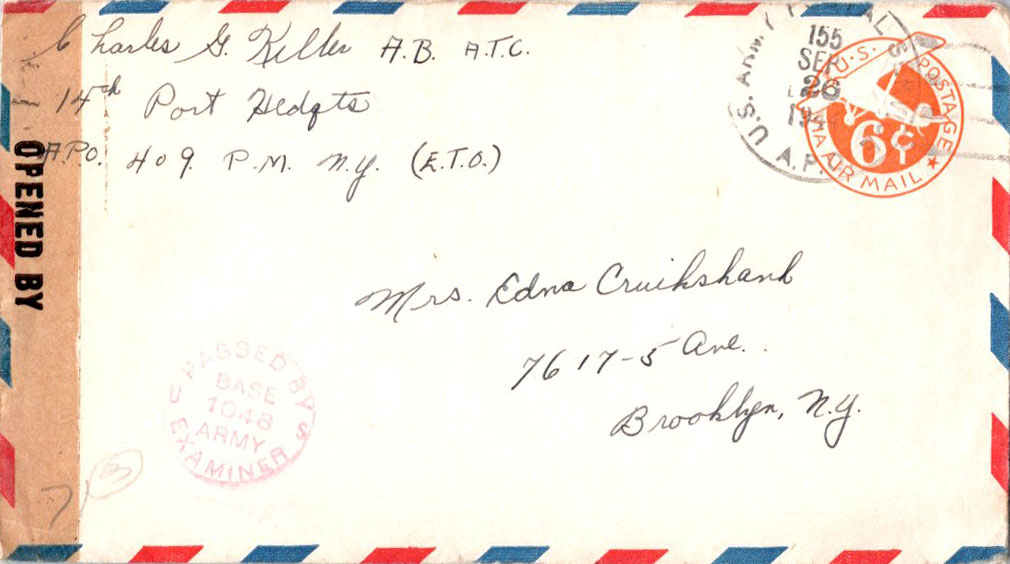 Charles G. Keller A.B. A.T.C.
14th Port Hedqts
A.P.O. 409 P.M. N.Y. (E.T.O.)
OPENED BY
U.S. ARMY POSTAL
155
SEP
26
194
A.P.
U.S. POSTAGE
6¢
VIA AIR MAIL
Mrs. Edna Cruikshank
7617-5 Ave.
Brooklyn, N.Y.
PASSED BY
U S
BASE
1048
ARMY
EXAMINER
7
3